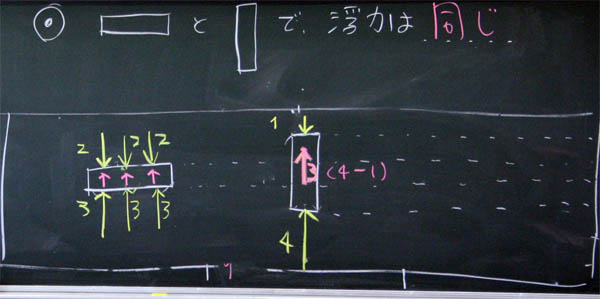 と で、浮力は 同じ
1
2 2 2
3 (4-1)
3 3 3
4